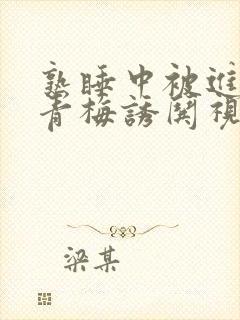 熟睡中被進
青梅誘関視
梁某